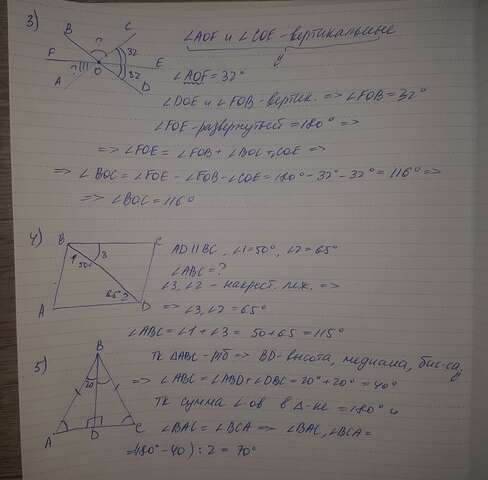 3) B C ? 32 F O E ? 32 A D
∠AOF и ∠COE - вертикальные
∠AOF = 32°
∠DOE и ∠FOB - вертик. => ∠FOB = 32°
∠FOE - развернутый = 180° =>
=> ∠FOE = ∠FOB + ∠BOC + COE =>
=> ∠BOC = ∠FOE - ∠FOB - ∠COE = 180° - 32° - 32° = 116° =>
=> ∠BOC = 116°
4) B C 1 50 3 A 65 2 D
AD || BC, ∠1 = 50°, ∠2 = 65°
∠ABC = ?
∠3, ∠2 - накрест. леж. =>
=> ∠3, ∠2 = 65°
∠ABC = ∠1 + ∠3 = 50 + 65 = 115°
5) B 20 A D C
тк ΔABC - р/б => BD - высота, медиана, бис-са
=> ∠ABC = ∠ABD + ∠DBC = 20° + 20° = 40°
тк сумма ∠ов в Δ-ке = 180° и
∠BAC = ∠BCA => ∠BAC, ∠BCA =
=(180° - 40) : 2 = 70°